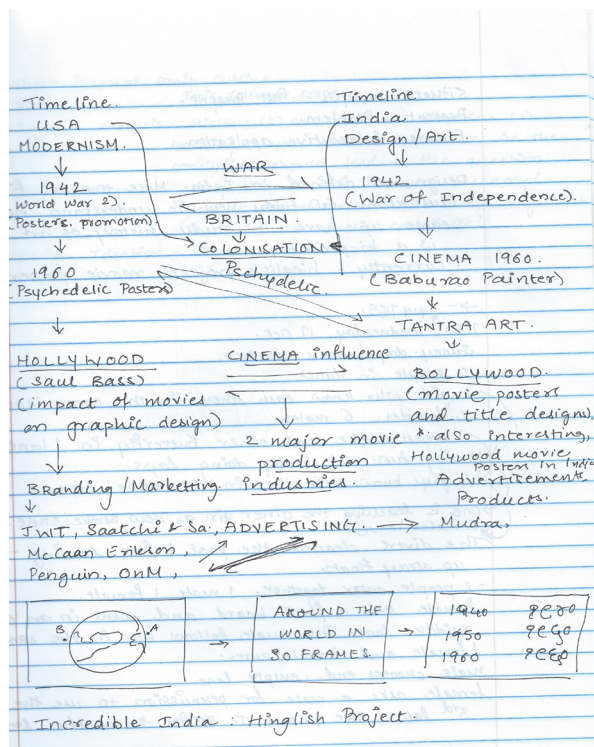 Timeline.
USA
MODERNISM.
1942
(World War 2).
(Posters, promotion)
1960
(Psychedelic Posters)
HOLLYWOOD
(Saul Bass)
(impact of movies
on graphic design)
Branding/Marketing
JWT, Saatchi & Sa., ADVERTISING.
McCaan Erikson,
Penguin, OnM,
WAR
BRITAIN.
COLONISATION
Pschydelic.
CINEMA influence
2 major movie
production
industries.
Timeline
India
Design/Art.
1942
(War of Independence).
CINEMA 1960.
(Baburao Painter)
TANTRA ART.
BOLLYWOOD.
(movie posters
and title designs).
* also interesting,
Hollywood movie
Posters in India
Advertisements
Products.
Mudra,
B A
AROUND THE
WORLD IN
30 FRAMES.
1940
1950
1960
Incredible India : Hinglish Project.